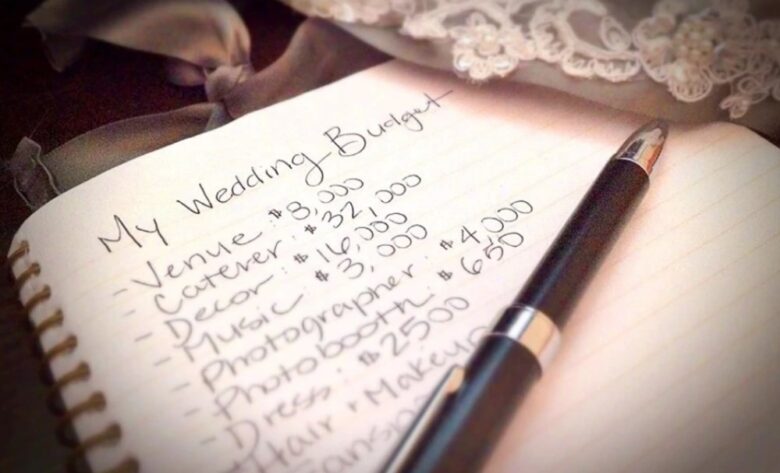 My Wedding Budget
- Venue : $ 8,000
- Caterer : $ 32,000
- Decor : $ 16,000
- Music : $ 3,000
- Photographer : $ 4,000
- Photobooth : $ 650
- Dress : $ 2500
- Hair + Makeup